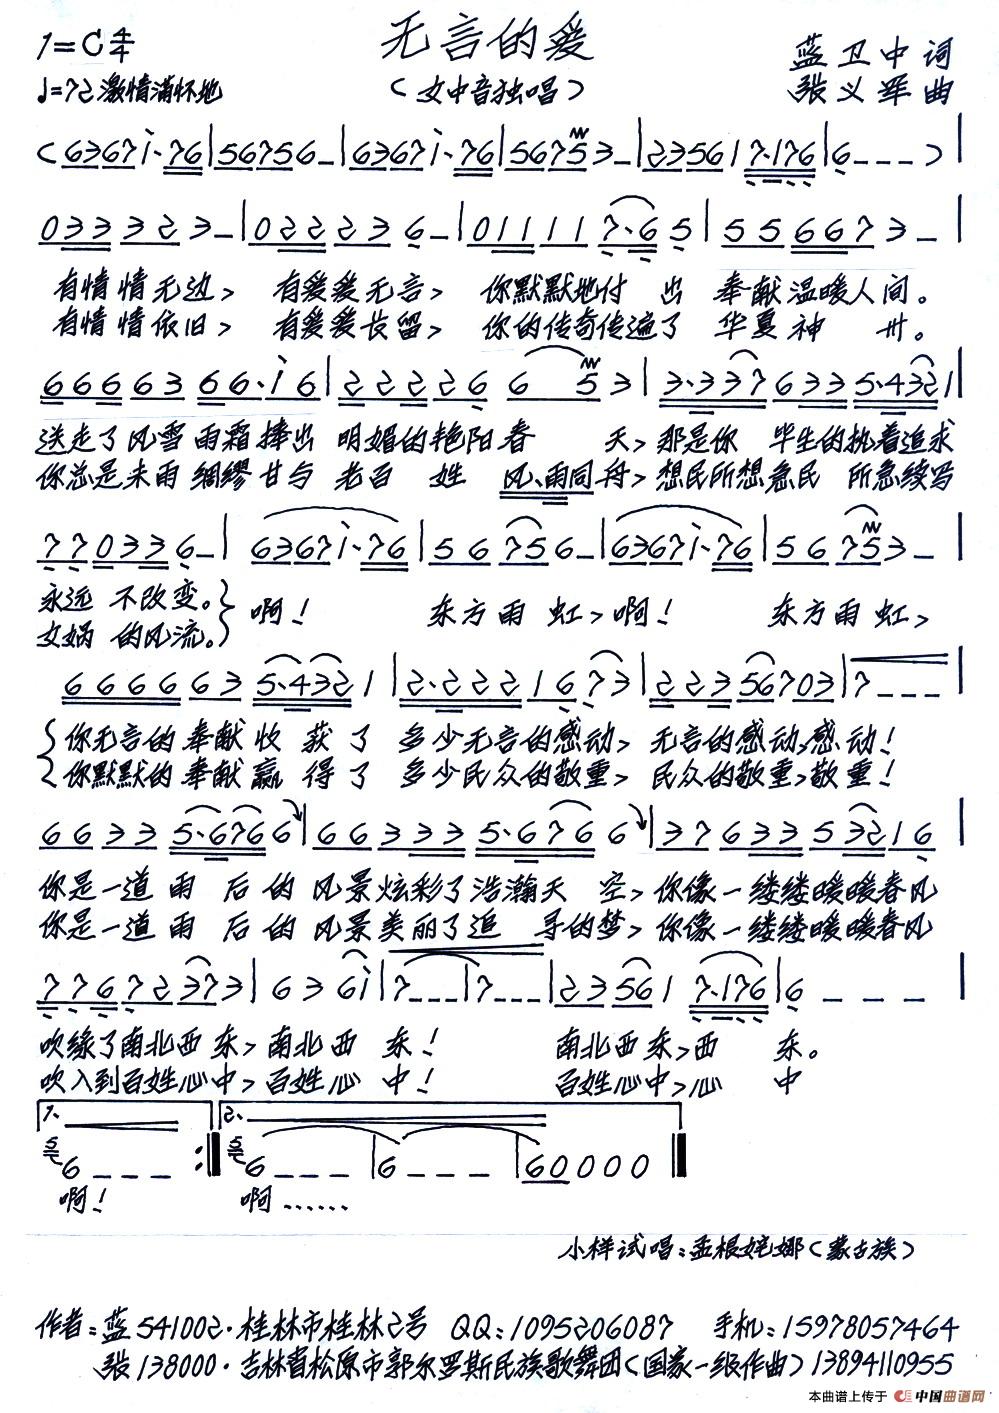 无言的爱
1=C 4/4
♩=72 激情满怀地
(女中音独唱)
蓝卫中词
张义军曲
(6367i·76|56756-|6367i·76|56753-|235617·176|6---)|
033323-|022236-|011117·65|556673-|
有情情无边, 有爱爱无言, 你默默地付出 奉献温暖人间。
有情情依旧, 有爱爱长留, 你的传奇传遍了 华夏神州。
6666366·i6|22226653|3·3376335·4321|
送走了风雪雨霜捧出 明媚的艳阳春天, 那是你 毕生的执着追求
你总是未雨绸缪甘与 老百姓 风、雨同舟, 想民所想急民 所急续写
770336-|6367i·76|567566-|6367i·76|56753-|
永远 不改变。 啊! 东方雨虹, 啊! 东方雨虹,
女娲 的风流。
6666635·4321|2·2221673|22356703|7---|
你无言的奉献收获了 多少无言的感动, 无言的感动,感动!
你默默的奉献赢得了 多少民众的敬重, 民众的敬重,敬重!
66335·6766|663335·6766|3763353216|
你是一道雨后的风景炫彩了浩瀚天空, 你像一缕缕暖暖春风
你是一道雨后的风景美丽了追寻的梦, 你像一缕缕暖暖春风
77672373|636i|7---|7---|235617·176|6---|
吹绿了南北西东, 南北西东! 南北西东,西东。
吹入到百姓心中, 百姓心中! 百姓心中,心中
1. 2.
6---:|6---|6---|600000|
啊! 啊……
小样试唱:孟根姹娜(蒙古族)
作者:蓝 541002·桂林市桂林2号 QQ:1095206087 手机:15978057464
张 138000·吉林省松原市郭尔罗斯民族歌舞团(国家一级作曲)13894110955
本曲谱上传于 中国曲谱网